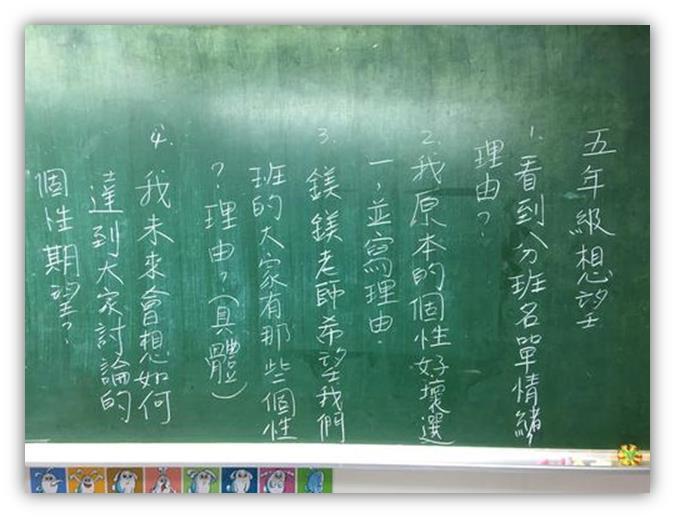 五年級想望
1. 看到分班名單情緒
理由？
2. 我原本的個性好壞選
一，並寫理由.
3. 鎂鎂老師希望我們
班的大家有那些個性
？理由？(具體)
4. 我未來會想如何
達到大家討論的
個性期望？